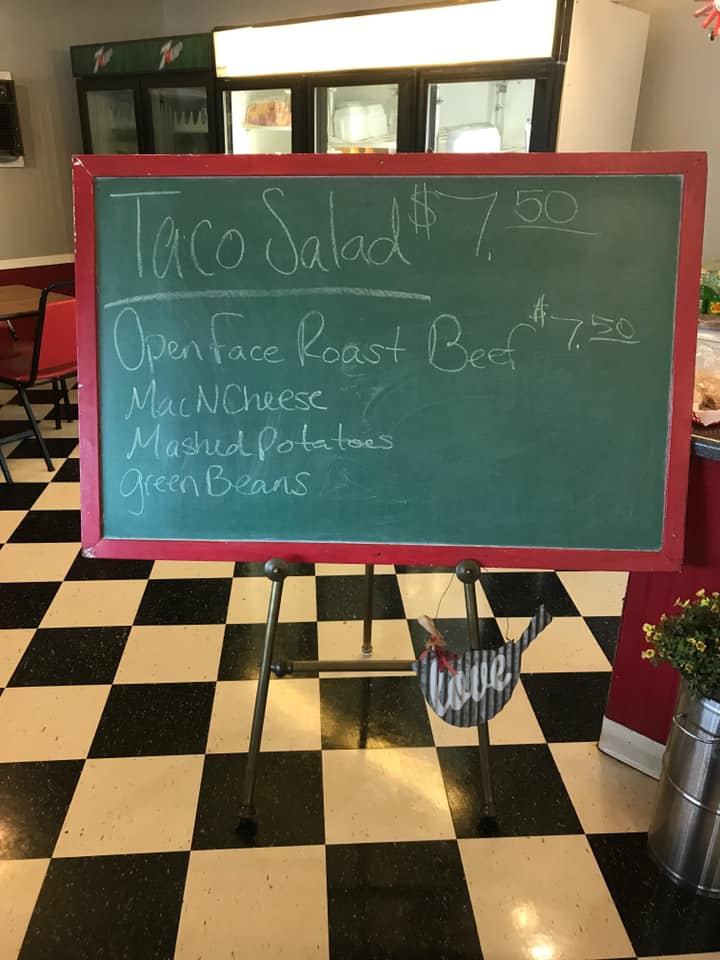 7UP 7UP
Taco Salad $7.50
Open Face Roast Beef $7.50
Mac N Cheese
Mashed Potatoes
green Beans
love